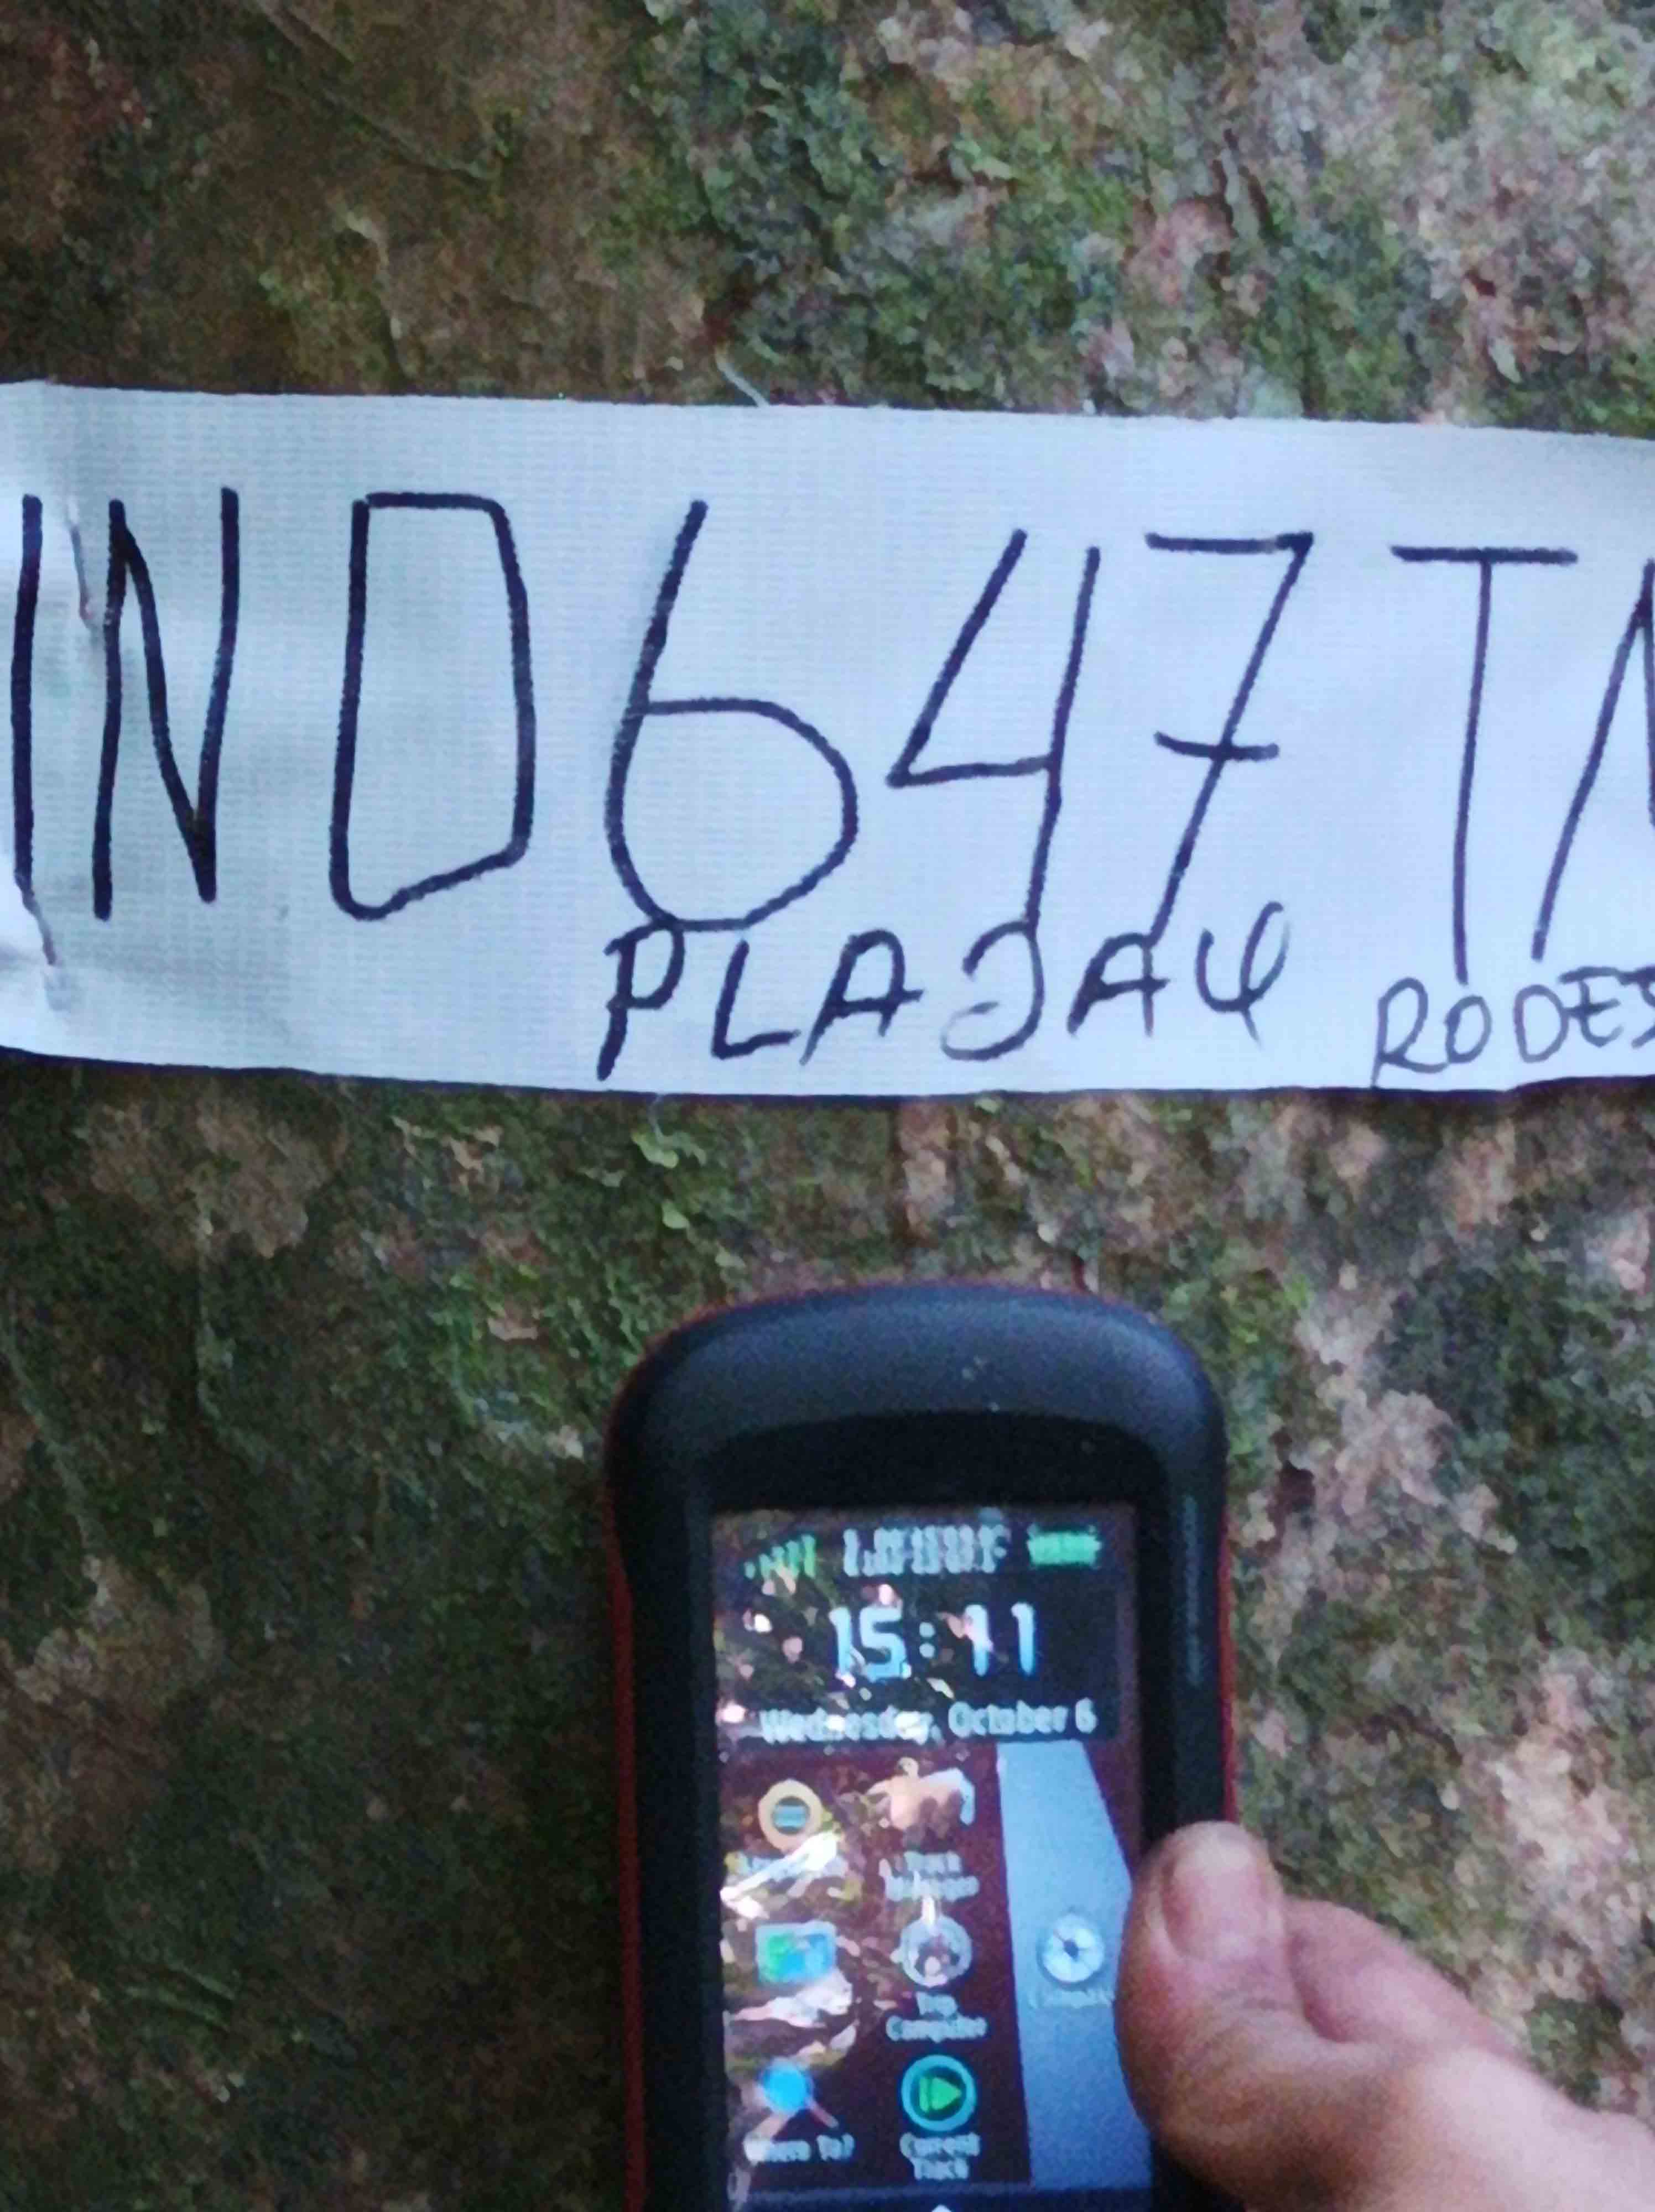 IND647TA
PLAJA4 RODES
15:11
Wednesday, October 6
Track
Manager
Trip
Computer
Compass
Where To?
Current
Track